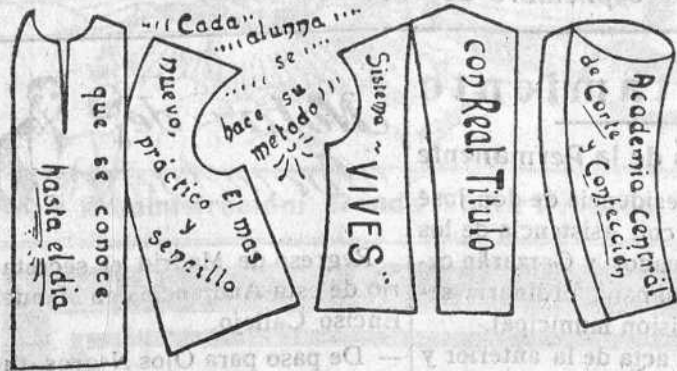 Academia Central
de Corte y Confección
con Real Titulo
Sistema "VIVES"
"Cada"
alumna
se
hace su
método
El mas
nuevo,
práctico y
sencillo
que se conoce
hasta el dia